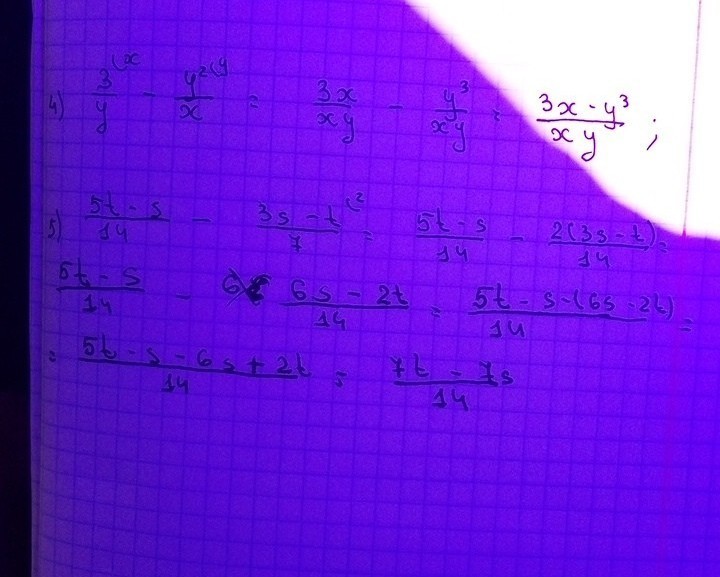 4) 3/y (x - y²/x (y = 3x/xy - y³/xy = 3x - y³/xy ;
5) 5t - s/14 - 3s - t/7 (2 = 5t - s/14 - 2(3s - t)/14 =
5t - s/14 - 6s - 2t/14 = 5t - s - (6s - 2t)/14 =
= 5t - s - 6s + 2t/14 = 7t - 7s/14